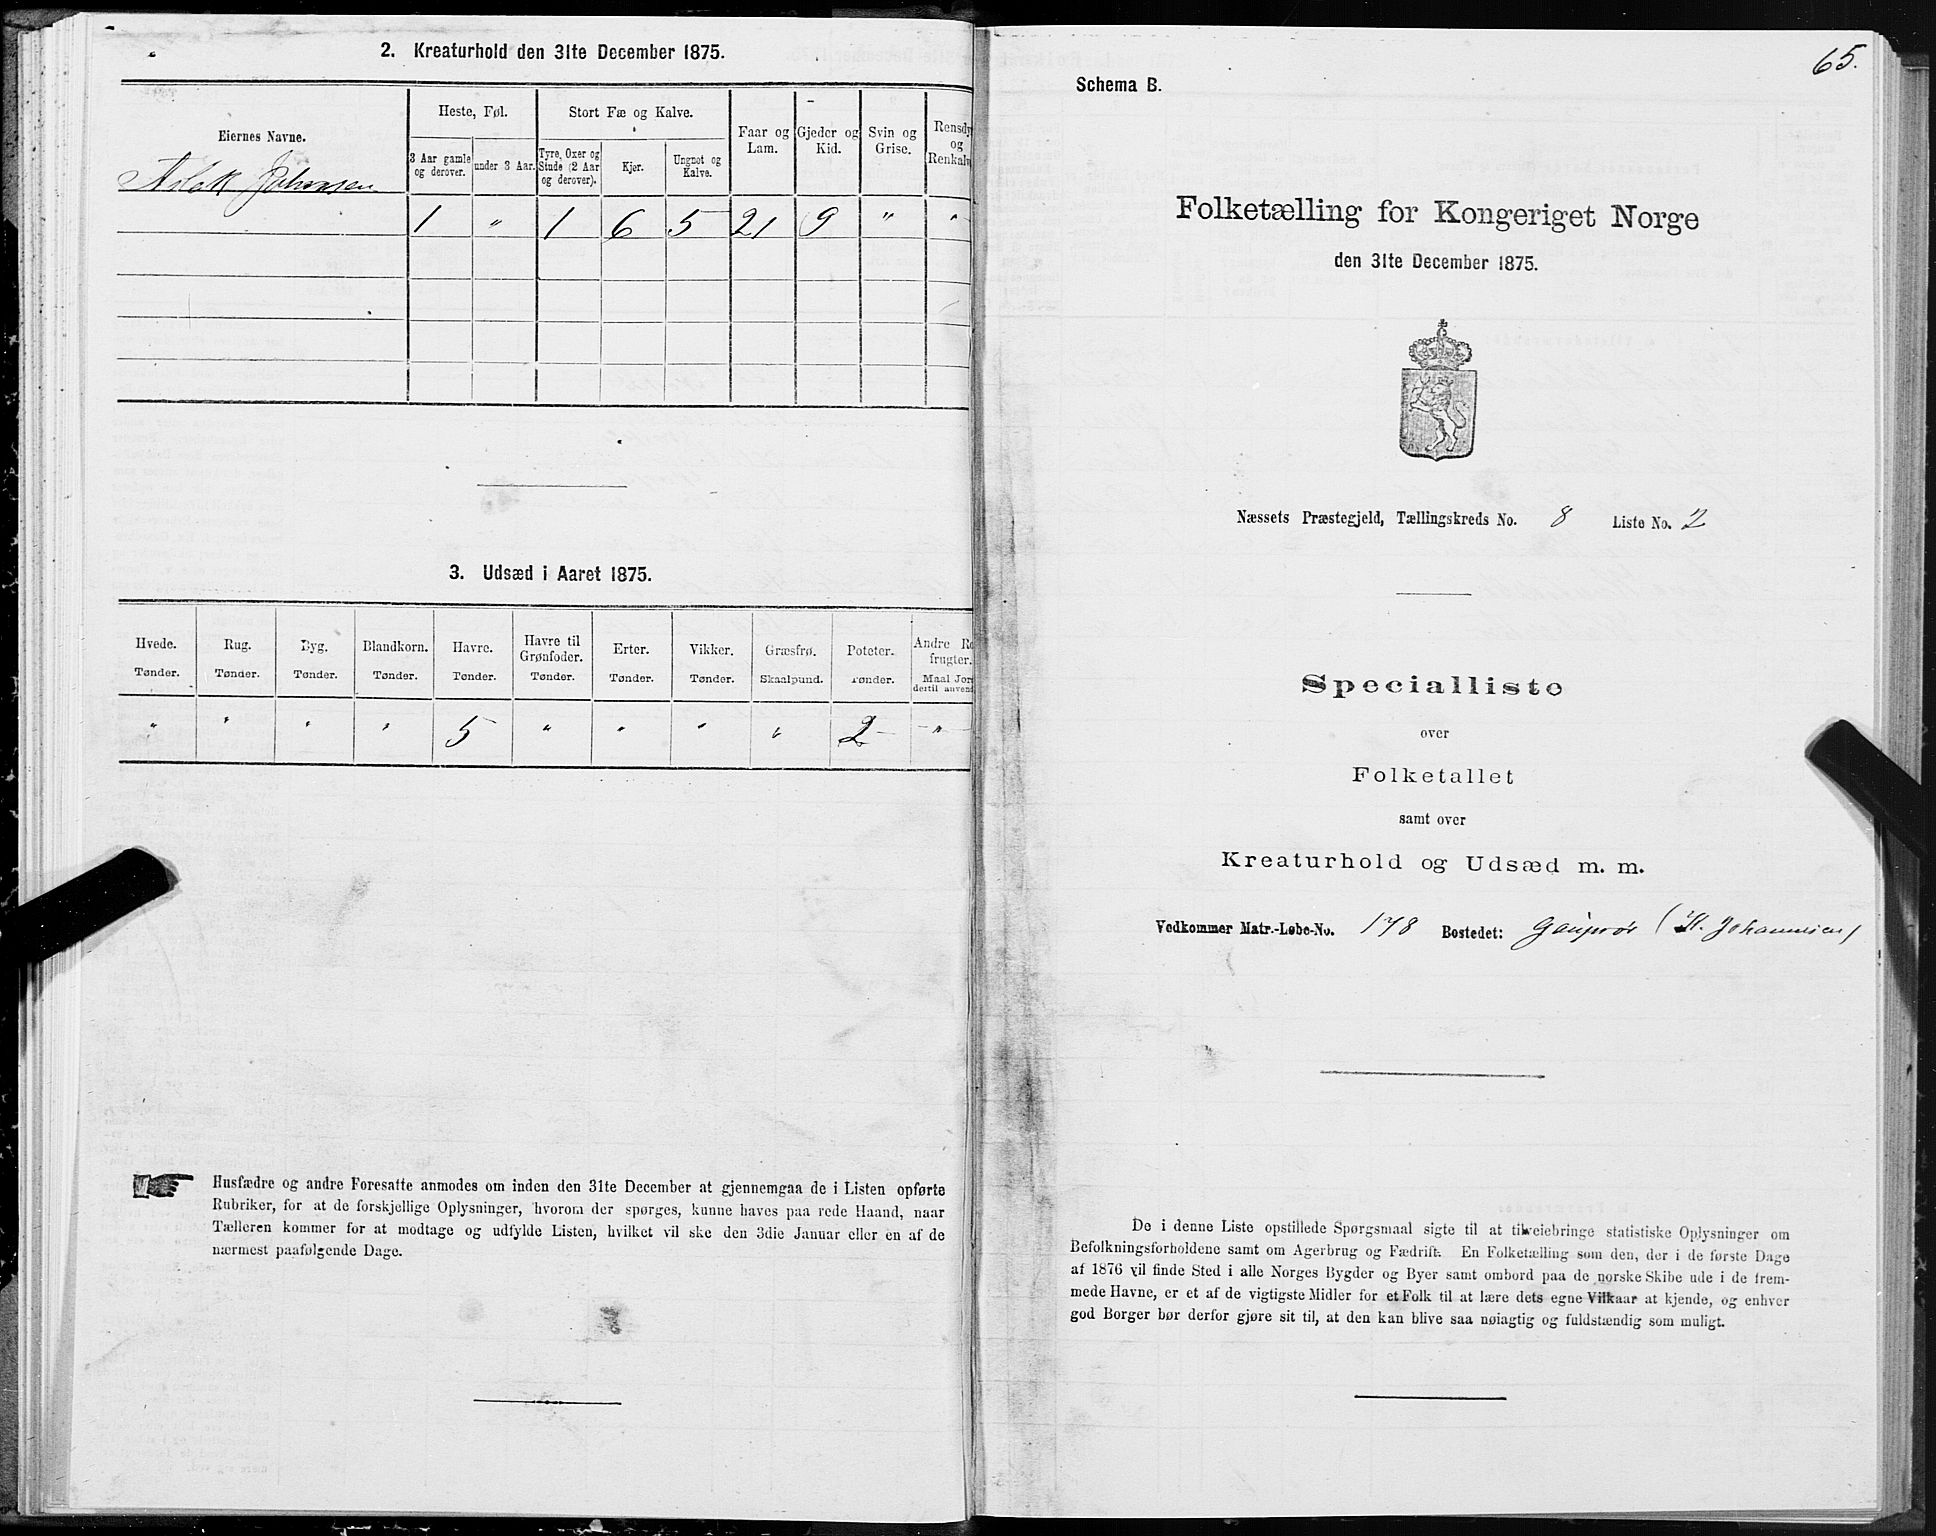 2. Kreaturhold den 31te December 1875.
Eiernes Navne.
Heste, Føl.
Stort Fæ og Kalve.
Faar og Lam.
Gjeder og Kid.
Svin og Grise.
Rensdy
og
Renkalv
3 Aar gamle og derover.
under 3 Aar.
Tyre, Oxer og Stude (2 Aar og derover).
Kjør.
Ungnøt og Kalve.
Aslak Johnsen
1 " 1 6 5 21 9 " "
3. Udsæd i Aaret 1875.
Hvede. Rug. Byg. Blandkorn. Havre. Havre til Grønfoder. Erter. Vikker. Græsfrø. Poteter. Andre Ro
frugter.
Tønder. Tønder. Tønder. Tønder. Tønder. Tønder. Tønder. Tønder. Skaalpund. Tønder. Maal Jor
dertil anven
" " " " 5 " " " " 2 "
Husfædre og andre Foresatte anmodes om inden den 31te December at gjennemgaa de i Listen opførte
Rubriker, for at de forskjellige Oplysninger, hvorom der spørges, kunne haves paa rede Haand, naar
Tælleren kommer for at modtage og udfylde Listen, hvilket vil ske den 3die Januar eller en af de
nærmest paafølgende Dage.
65.
Schema B.
Folketælling for Kongeriget Norge
den 31te December 1875.
Næssets Præstegjeld, Tællingskreds No. 8 Liste No. 2
Specialliste
over
Folketallet
samt over
Kreaturhold og Udsæd m. m.
Vedkommer Matr.-Løbe-No. 178 Bostedet: Gauprør ( Johannsen)
De i denne Liste opstillede Spørgsmaal sigte til at tilveiebringe statistiske Oplysninger om
Befolkningsforholdene samt om Agerbrug og Fædrift. En Folketælling som den, der i de første Dage
af 1876 vil finde Sted i alle Norges Bygder og Byer samt ombord paa de norske Skibe ude i de frem-
mede Havne, er et af de vigtigste Midler for et Folk til at lære dets egne Vilkaar at kjende, og enhver
god Borger bør derfor gjøre sit til, at den kan blive saa nøiagtig og fuldstændig som muligt.